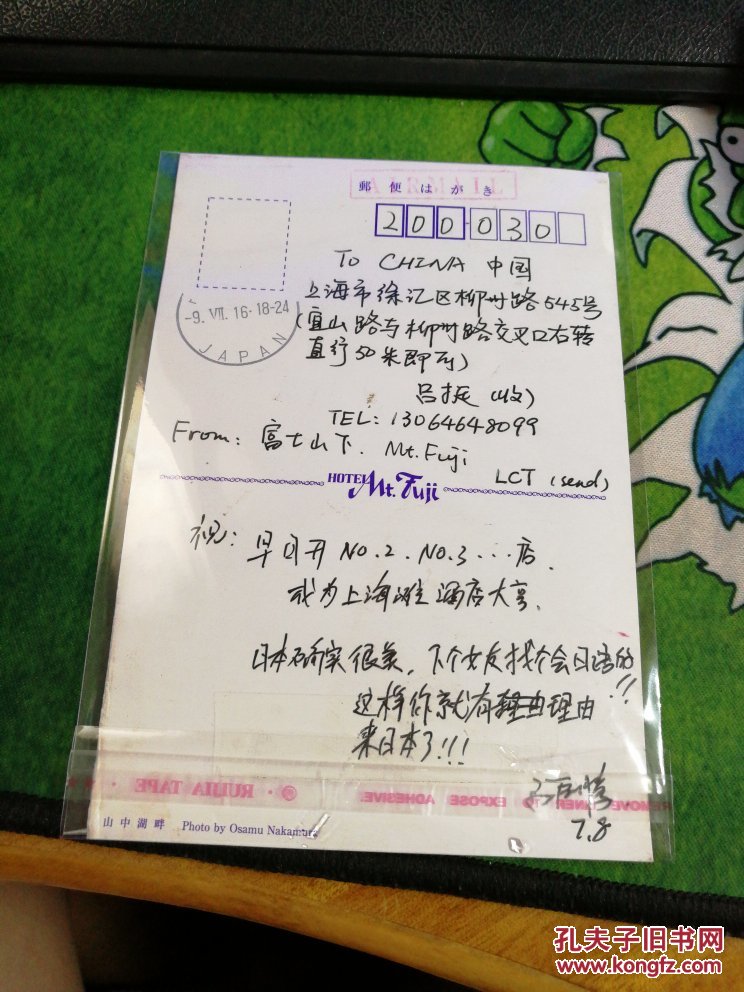 AIRMAIL
郵便はがき
200-030
-9. VII. 16·18-24
JAPAN
To CHINA 中国
上海市徐汇区柳州路545号
(宜山路与柳州路交叉口右转
直行50米即到)
吕振(收)
TEL: 13064648099
From: 富士山下. Mt. Fuji
LCT (send)
HOTEL Mt. Fuji
祝: 早日开 NO.2. NO.3...店.
成为上海滩酒店大亨.
日本确实很美, 下个女友找个会日语的
这样你就有理由理由!!
来日本了!!!
7.8
RUIJIA TAPE
TO EXPOSE ADHESIVE.
山中湖畔 Photo by Osamu Nakamura
孔夫子旧书网
www.kongfz.com